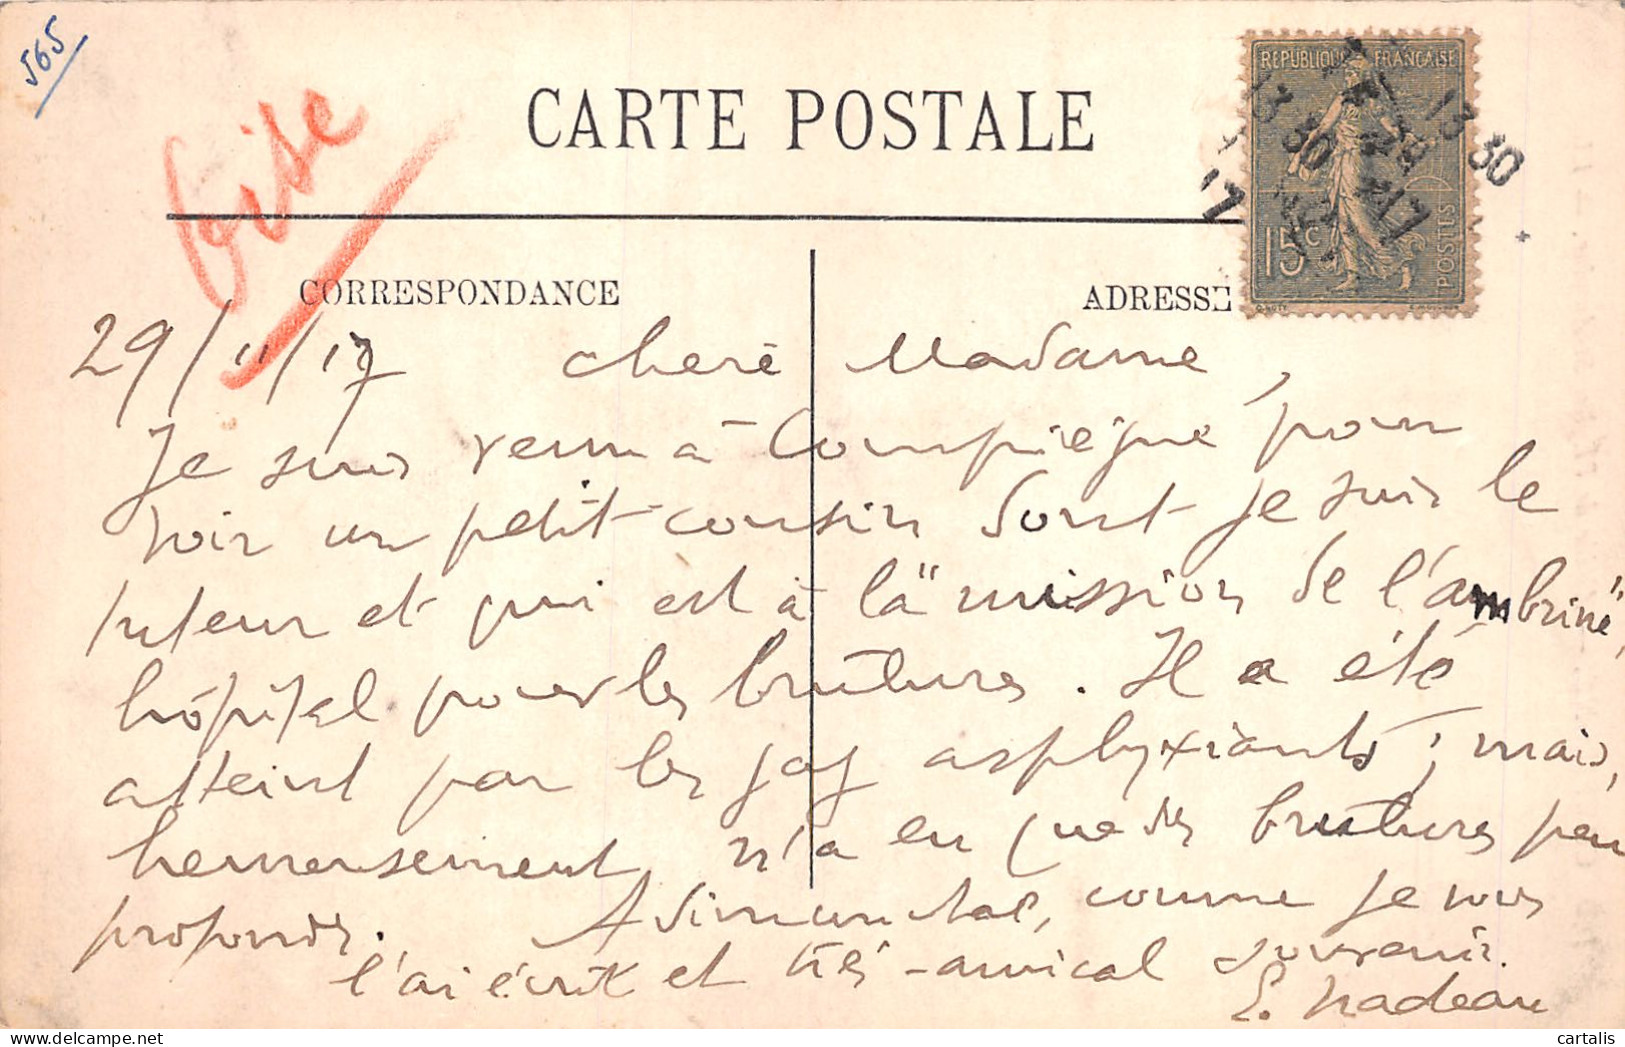 565
Oise
CARTE POSTALE
REPUBLIQUE FRANÇAISE
15c
POSTES
13 30
13 30
CORRESPONDANCE
ADRESSE
29/11/17 chère Madame,
Je suis venu à Compiègne pour
voir un petit-cousin dont je suis le
tuteur et qui est à là "mission de l'ambrine",
hôpital pour les brûlures. Il a été
atteint par les gaz asphyxiants ; mais,
heureusement n'a eu que des brûlures peu
profondes. A dimanche, comme je vous
l'ai écrit et très-amical souvenir.
E. Nadeau
cartalis